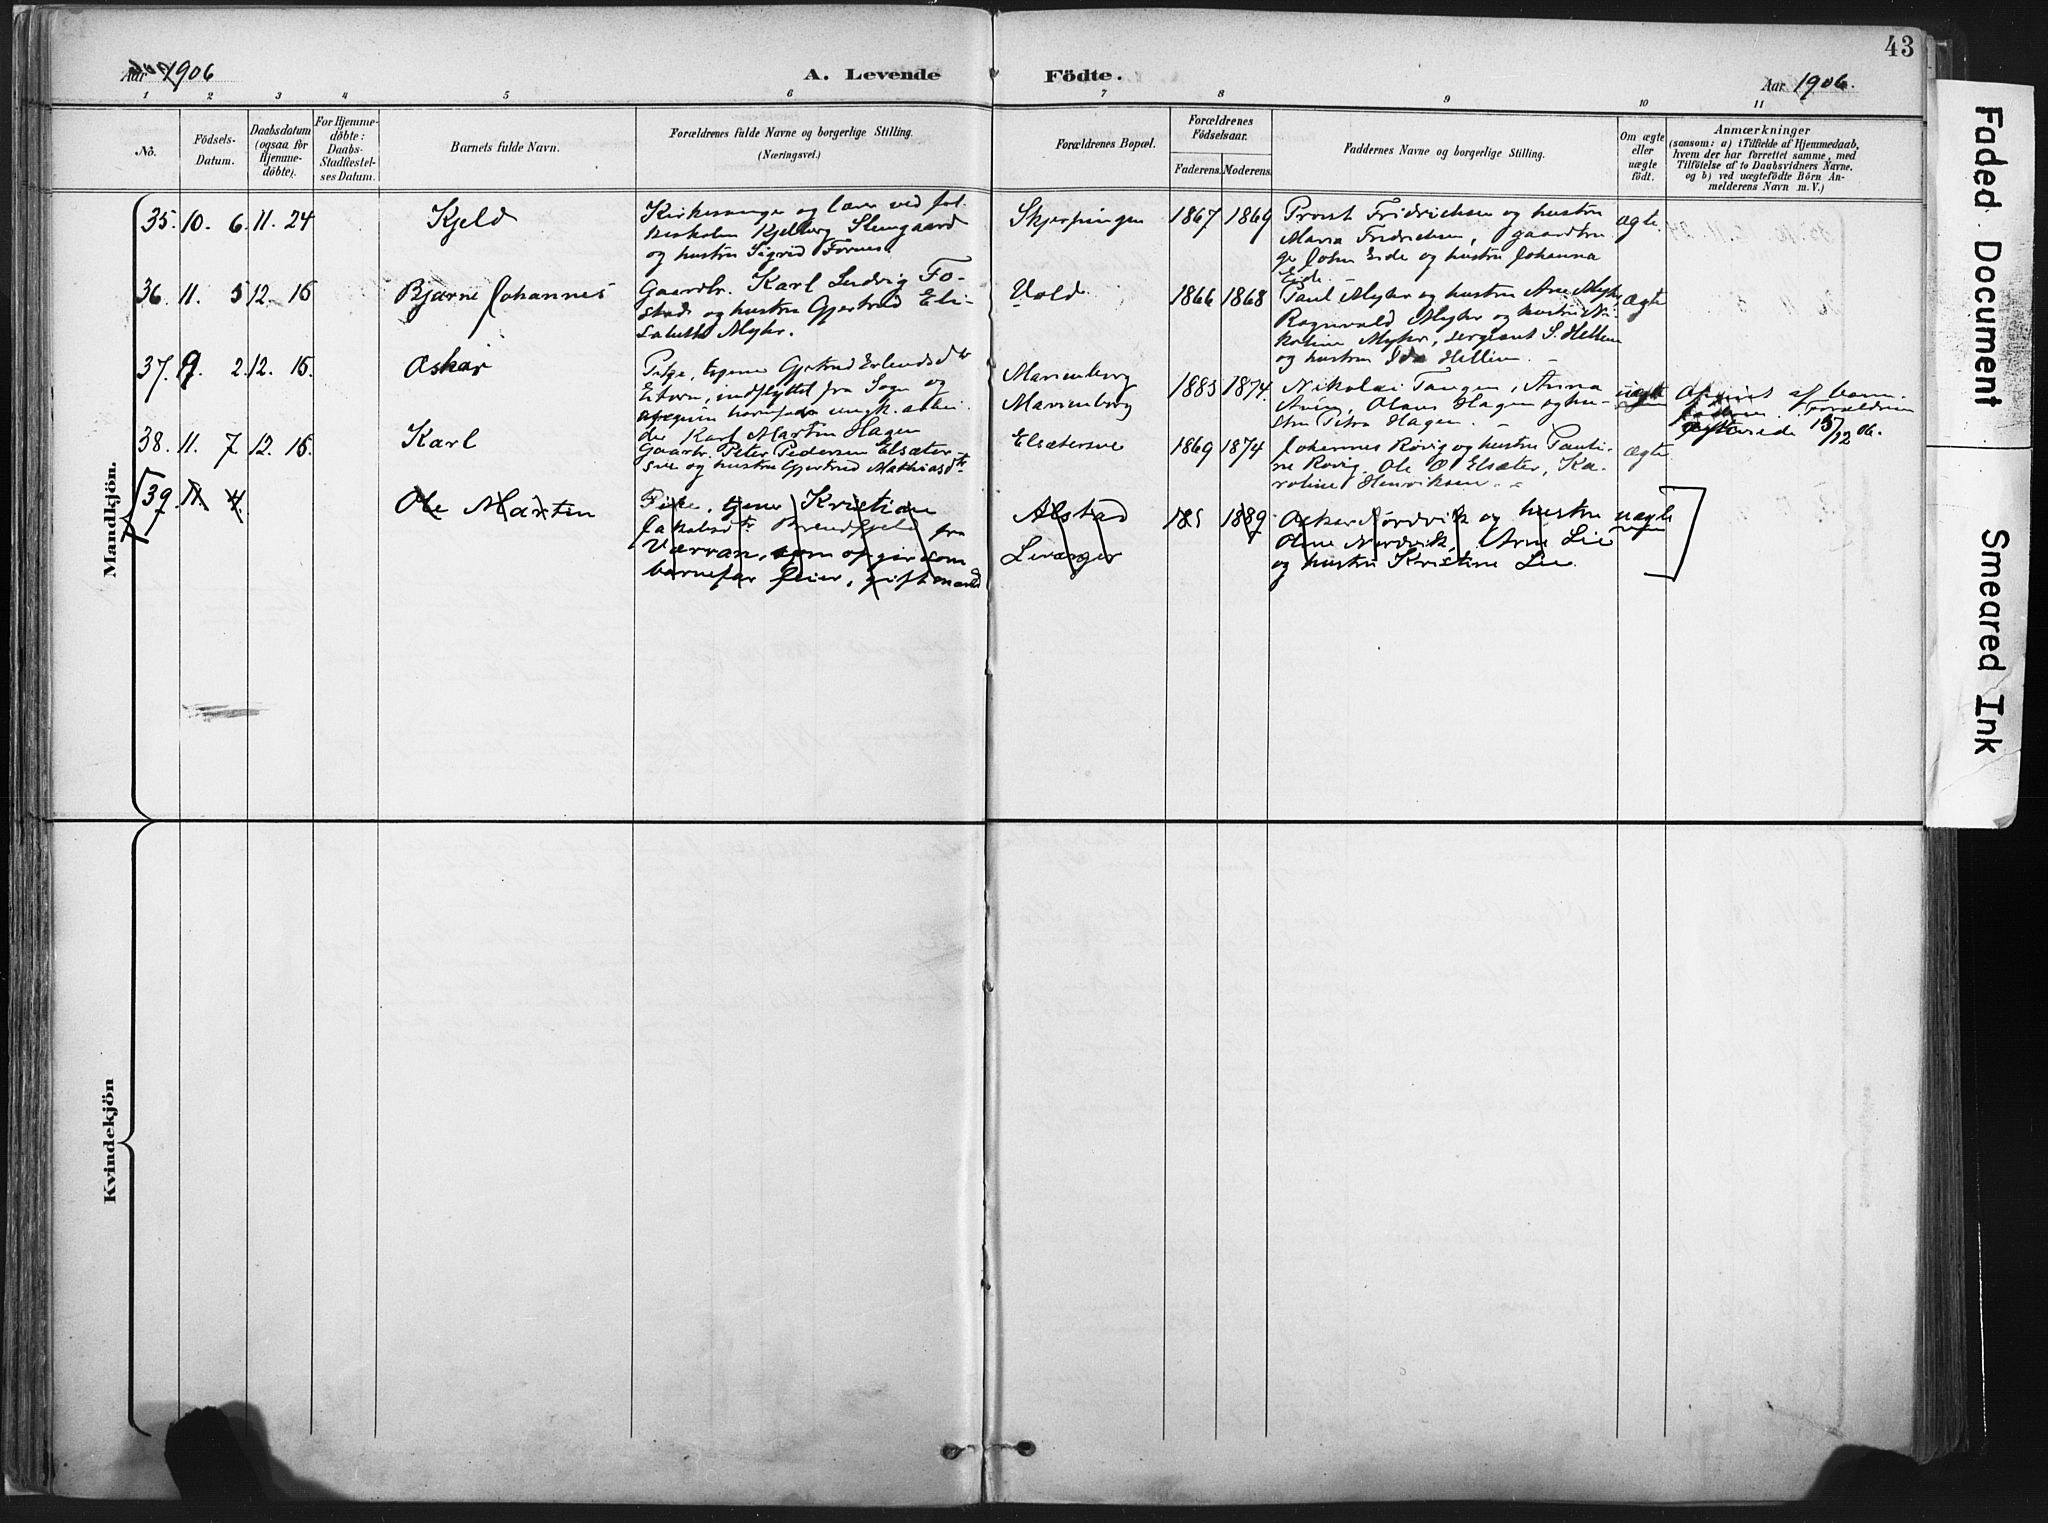 43
Aar 1906
A. Levende
Födte.
Aar 1906.
1 2 3 4 5 6 7 8 9 10 11
No.
Födsels-
Datum.
Daabsdatum
(ogsaa for
Hjemme-
döbte).
For Hjemme-
döbte:
Daabs-
Stadfæstel-
ses Datum.
Barnets fulde Navn.
Forældrenes fulde Navne og borgerlige Stilling.
(Næringsvei.)
Forældrenes Bopæl.
Forældrenes
Födselsaar.
Faderens. Moderens.
Faddernes Navne og borgerlige Stilling.
Om ægte
eller
uægte
födt.
Anmærkninger
(saasom: a) i Tilfælde af Hjemmedaab,
hvem der har forrettet samme, med
Tilföielse af to Daabsvidners Navne,
og b) ved uægtefödte Börn An-
melderens Navn m. V.)
Mandkjön.
35. 10. 6. 11. 24
Kjeld
Kirkesanger og lærer ved fol-
Kjelberg Stengaard
og hustru Sigrid Fornes
Skjerpingen
1867 1869
Provst Fridrichsen og hustru
Maria Fridrichsen, gaardbru
ger John Eide og hustru Johanna
Eide.
ægte
36. 11. 5 12. 16
Bjarne Johannes
Gaardbr. Karl Ludvig Fo-
stad og hustru Gjertrud Eli-
sabeth Myhr.
Vold
1866 1868
Paul Myhr og hustru Ane Myhr
Ragnvald Myhr og hustru Ni-
koline Myhr, sergeant S. Hellem
og hustru Ida Hellem. -
ægte
37. 9. 2. 12. 16.
Oskar
Pige, tjener Gjertrud Erlendsdtr
indflyttet fra Sogn og
opgiven barnefader ungk. arbei-
der Karl Martin Hagen
Marienborg
Marienborg
1883 1874.
Nikolai Tangen, Anna
Olaus Hagen og hu-
stru Petra Hagen.
uægte
af barne-
faderen. Forældrene
giftede 15/12 06.
38. 11. 7 12. 16.
Karl
Gaardbr. Peter Pedersen Elsæter-
sve og hustru Gjertrud Mathiasdtr
Elsætersve
1869 1874
Johannes Røvig og hustru Pauli-
ne Røvig, Ole O. Elsæter, Ka-
roline Henriksen. -
ægte
39. 11. 4.
Ole Martin
Pige, tjener Kristian
Jakobsdtr Brendfjeld fra
Værran, som opgir som
barnefar Feier, gift mand
Alstad
Levanger
185 1889
Oskar Nordvik og hustru
Oline Nordvik, Arne Lie
og hustru Kristine Lie.
uægte
Kvindekjön
Faded Document
Smeared Ink